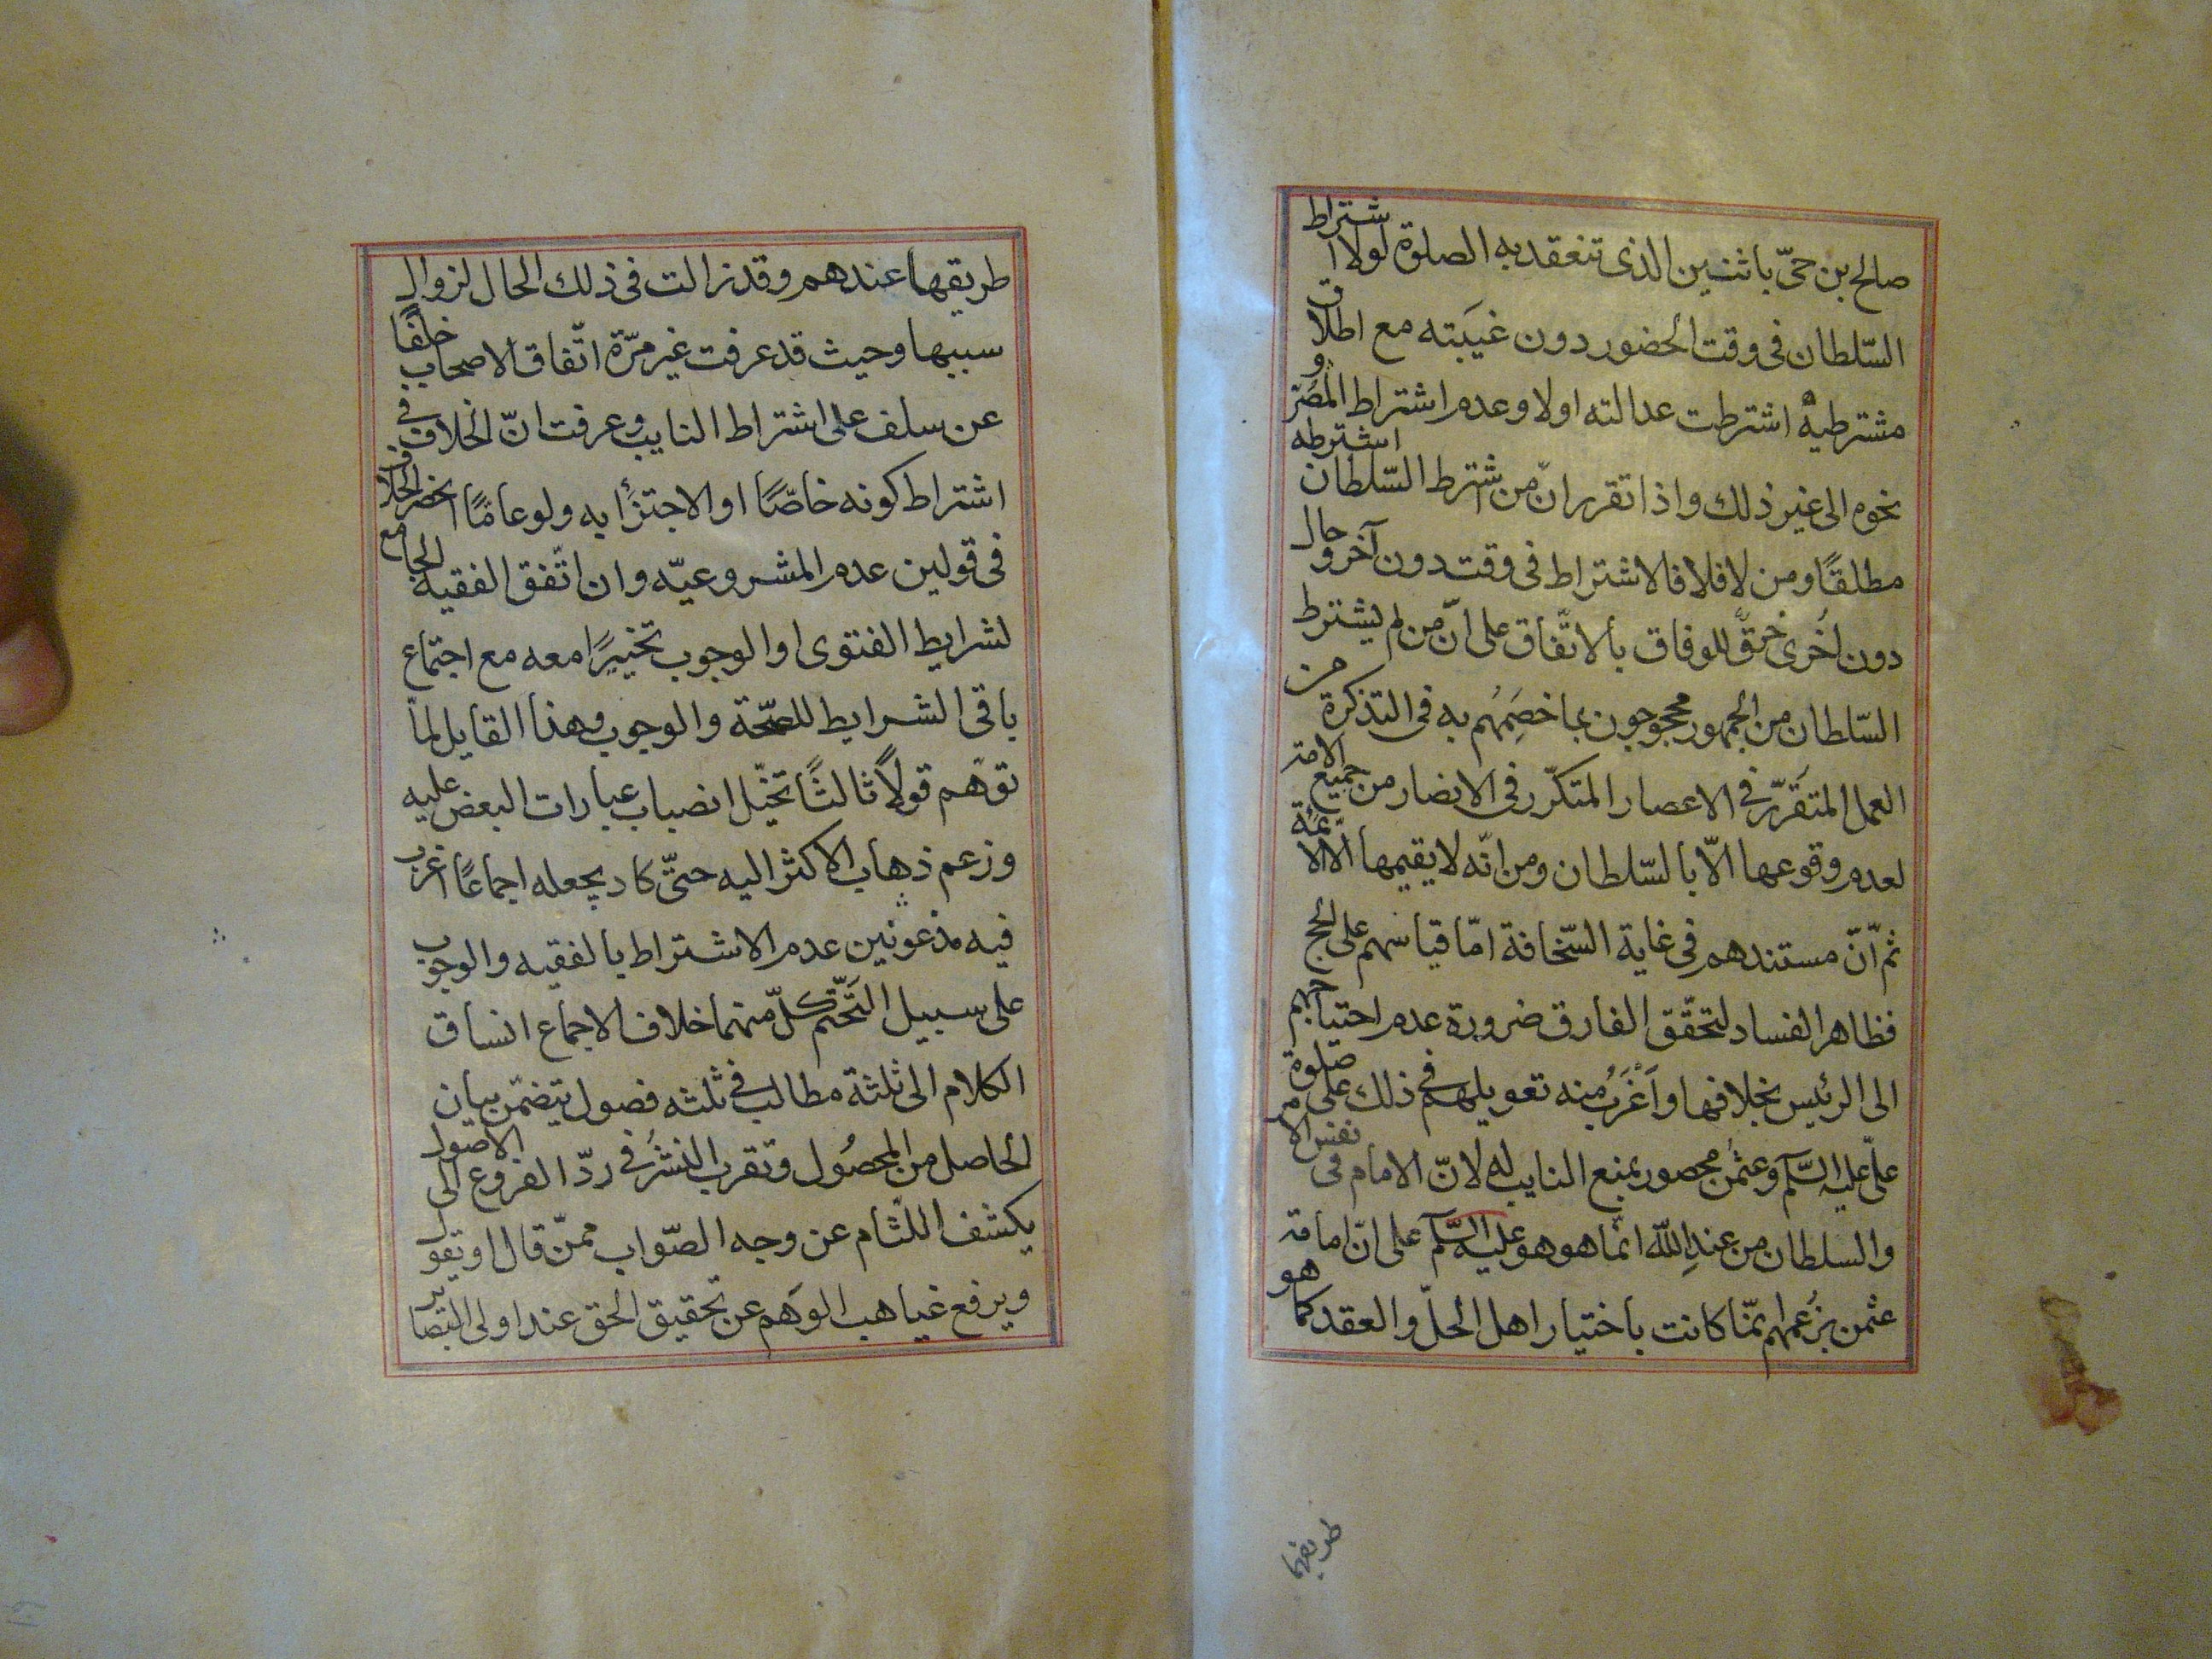 صالح بن حىّ باثنين الذى تنعقد به الصلوة لولا اشتراط
السّلطان فى وقت الحضور دون غيَبته مع اطلاق
مشترطيه اشترطت عدالته اولا وعدم اشتراط المصَر و
نحوه الى غير ذلك واذا تقرر انّ من اشترط السّلطان اشترطه
مطلقًا ومن لا فلا فالاشتراط فى وقت دون آخر وحال
دون اُخرى خرقٌ للوفاق بالاتّفاق على انّ من لم يشترط
السّلطان من الجمهور محجوجون بما خصَمِهُم به فى التذكرة من
العمل المتقرّر فى الاعصار المتكرّر فى الامصار من جميع الامة
لعدم وقوعها الّا بالسّلطان ومن انّه لا يقيمها الّا الائمّة
ثم انّ مستندهم فى غاية السّخافة امّا قياسهم على الحج
فظاهر الفساد لتحقّق الفارق ضرورة عدم احتياجهم
الى الرئيس بخلافها واَغْرَبُ منه تعويلهم فى ذلك على صلوة
علىّ عليه السَّلم وعثمن محصور بمنع النايب له لانّ الامام فى نفس الامر
والسلطان من عندِ اللّه انّما هو هو عليه السَّلم على انّ امامة
عثمن بزُعمهم انمّا كانت باختيار اهل الحلّ والعقد كما هو
طريقها
طريقها عندهم وقد زالت فى ذلك الحال لزوال
سببها وحيث قد عرفت غير مرّة اتّفاق الاصحاب خلفًا
عن سلف على اشتراط النايب وعرفت انّ الخلاف فى
اشتراط كونه خاصّا او الاجتزأ به ولو عامّا انحصر الخلاف
فى قولين عدم المشروعيّه وان اتّفق الفقيه الجامع
لشرايط الفتوى او الوجوب تخييرًا معه مع اجتماع
باقى الشرايط للصحّة والوجوب وهذا القايل لمّا
توهّم قولًا ثالثًا تخيّل انصباب عبارات البعض عليه
وزعم ذهاب الاكثر اليه حتّى كاد يجعله اجماعًا اغرب
فيه مذعونين عدم الاشتراط بالفقيه والوجوب
على سبيل التَحّتم كلّ منهما خلاف الاجماع انساق
الكلام الى ثلثة مطالب فى ثلثه فصول يتضمّن بيان
الحاصل من المحصُول وتقرب النشرُ فى ردّ الفروع الى الاصول
يكشف اللثام عن وجه الصّواب ممّن قال او تقول
ويرفع غياهب الوَهم عن تحقيق الحق عند اولى البصاير